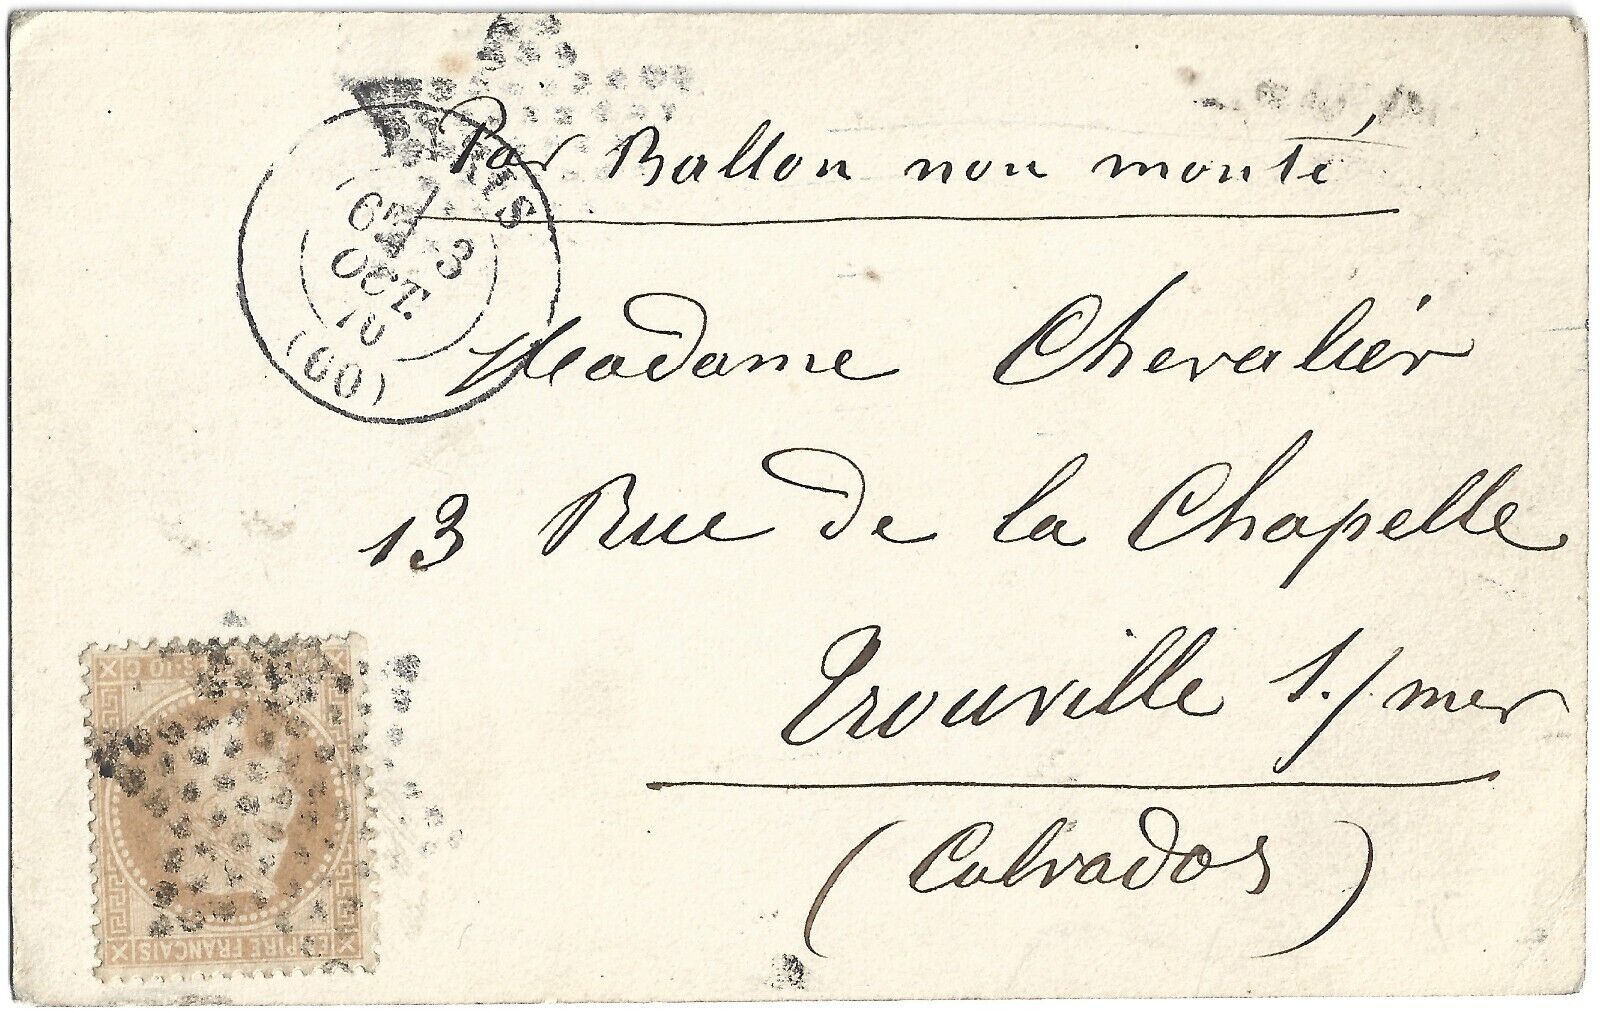 Par Ballon non monté
PARIS
6E 3
OCT.
70
(60)
Madame Chevalier
13 Rue de la Chapelle
Trouville s./mer
(Calvados)
EMPIRE FRANÇAIS